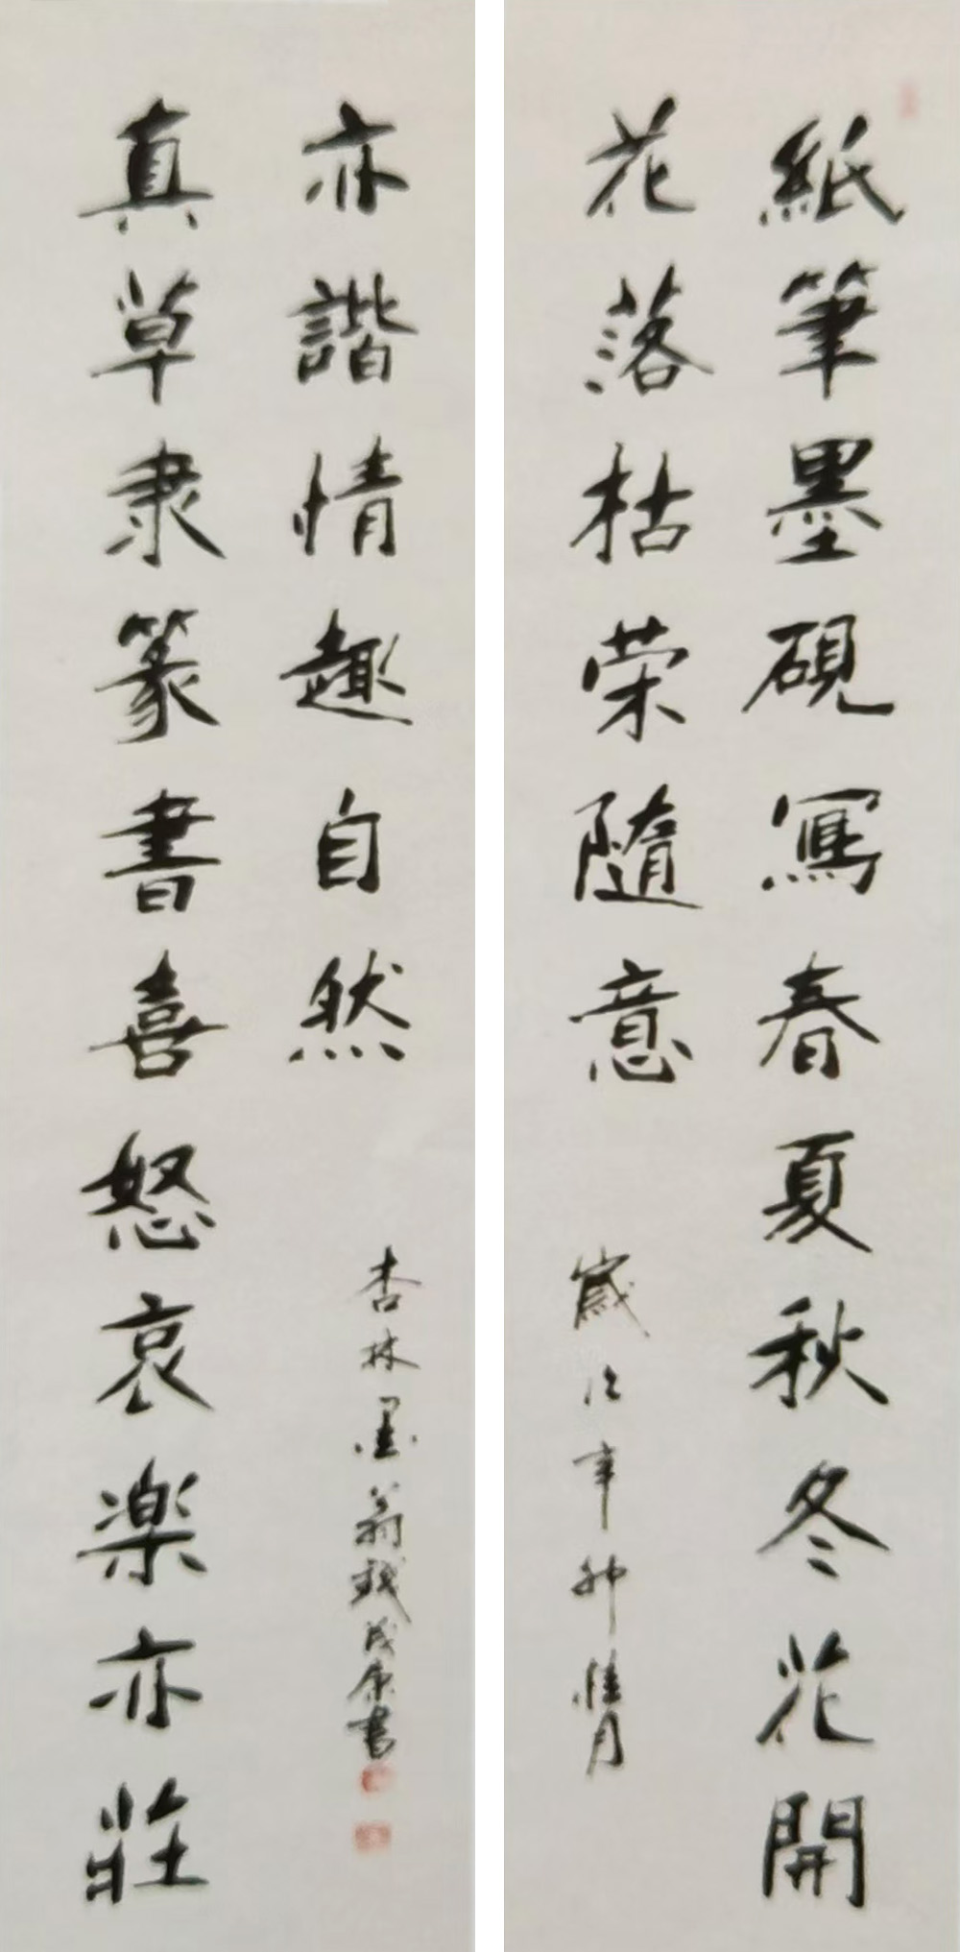 紙筆墨硯寫春夏秋冬花開
花落枯荣隨意
歲次辛卯桂月
真草隶篆書喜怒哀楽亦莊
亦諧情趣自然
杏林墨翁钱康書